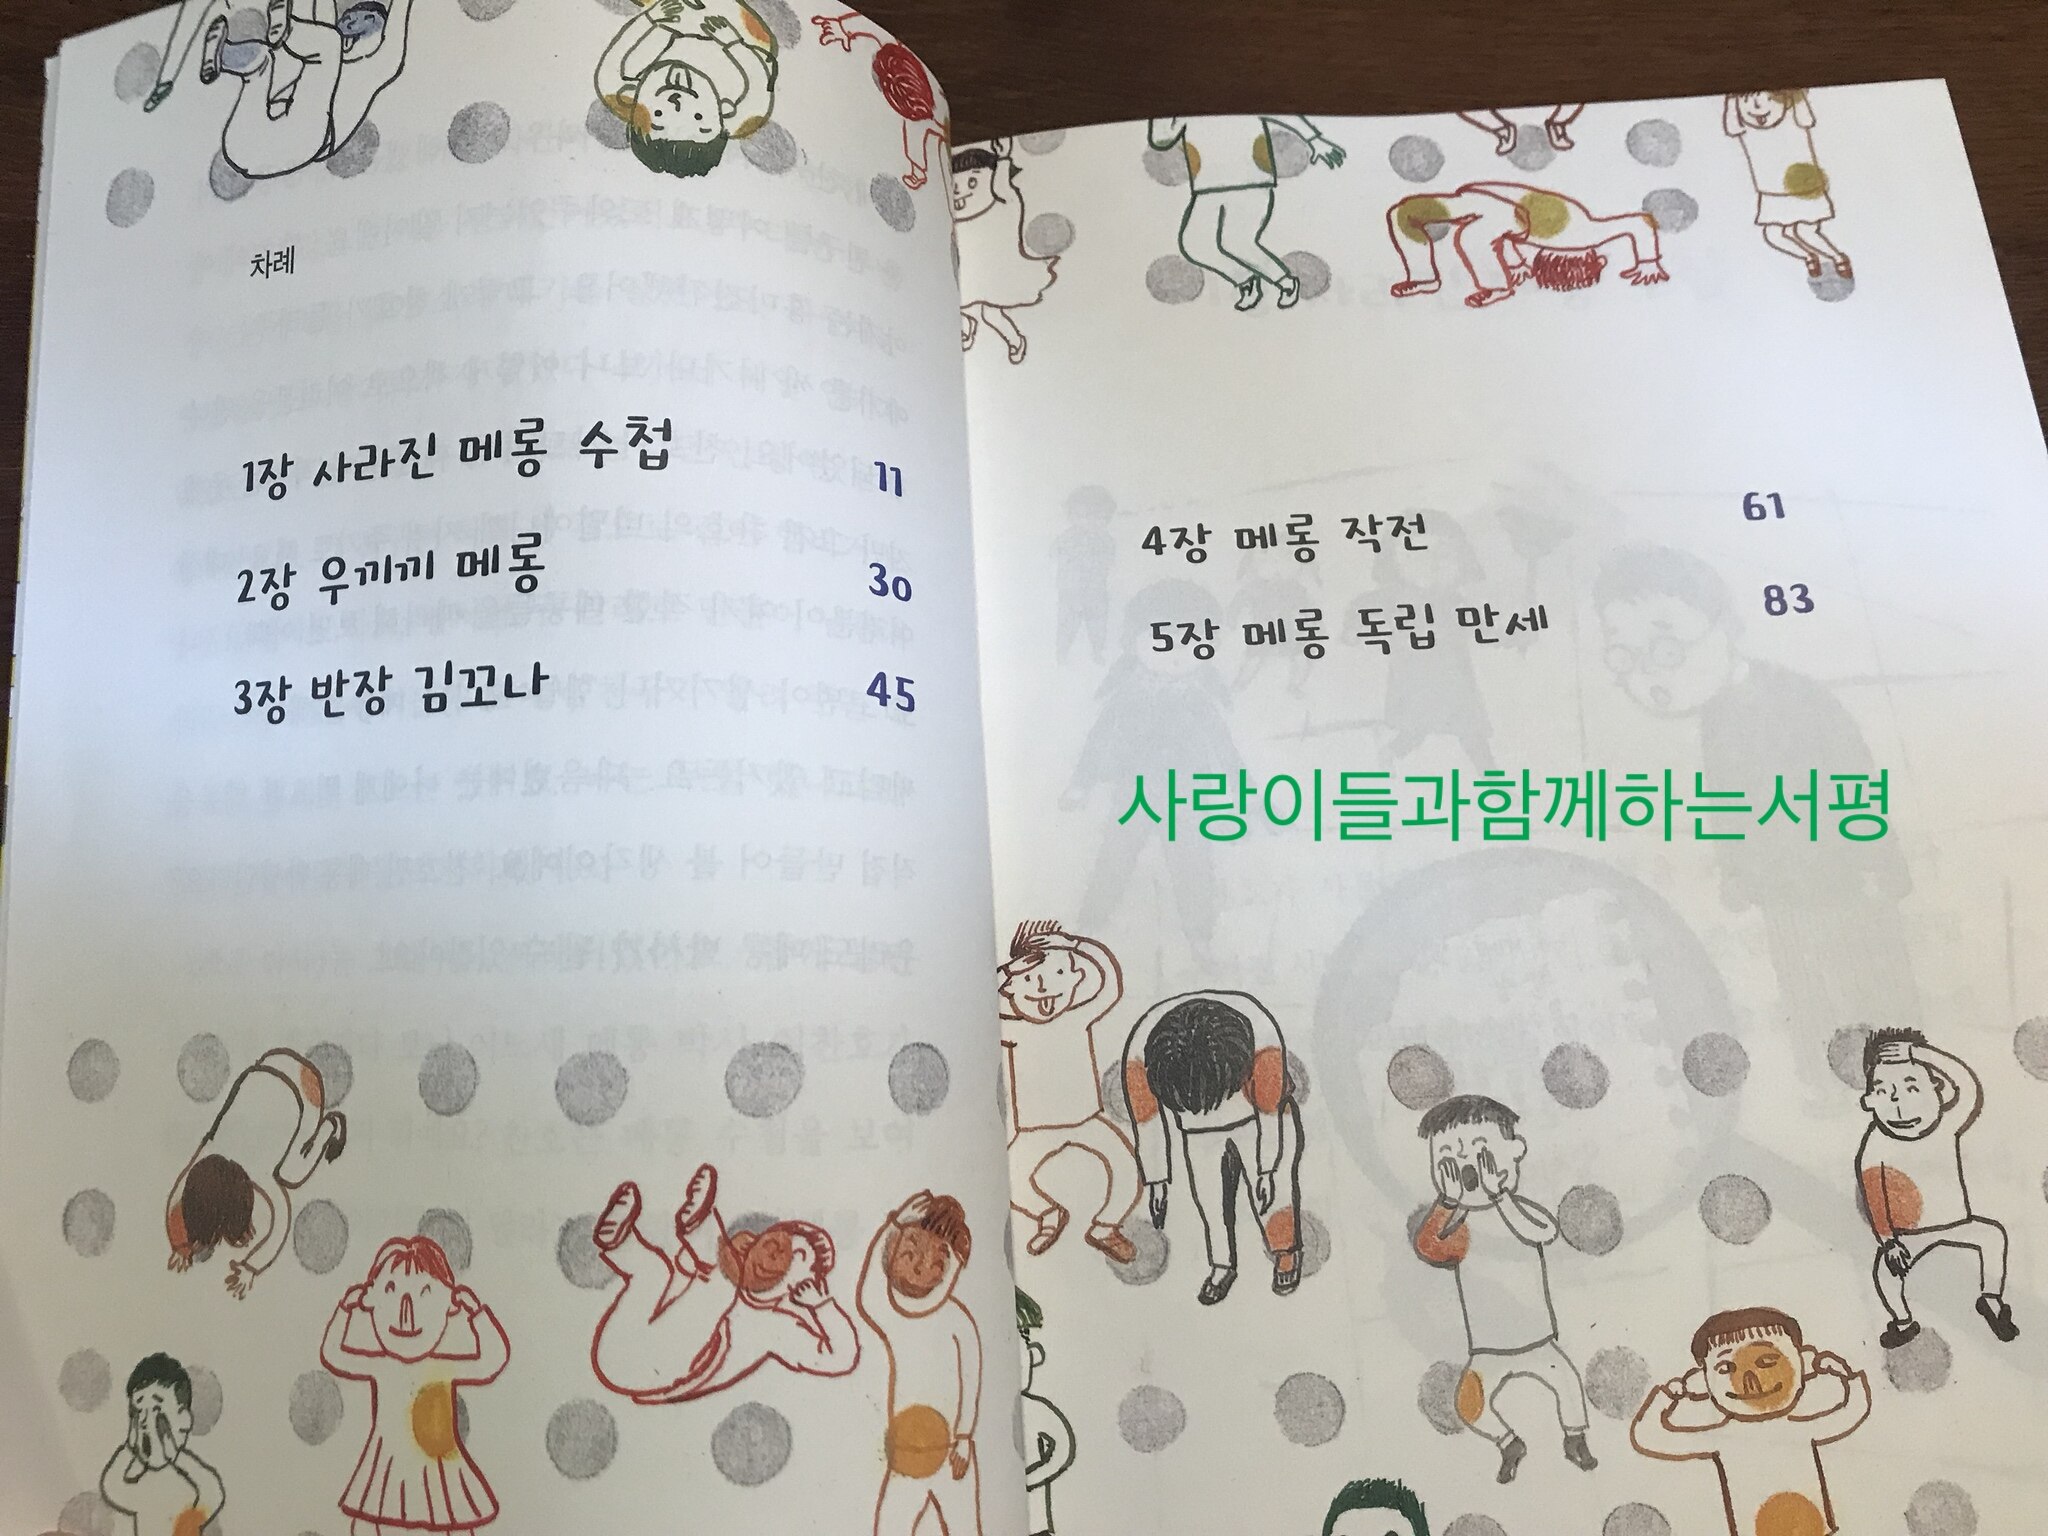 차례
1장 사라진 메롱 수첩 11
2장 우끼끼 메롱 30
3장 반장 김꼬나 45
4장 메롱 작전 61
5장 메롱 독립 만세 83
사랑이들과함께하는서평